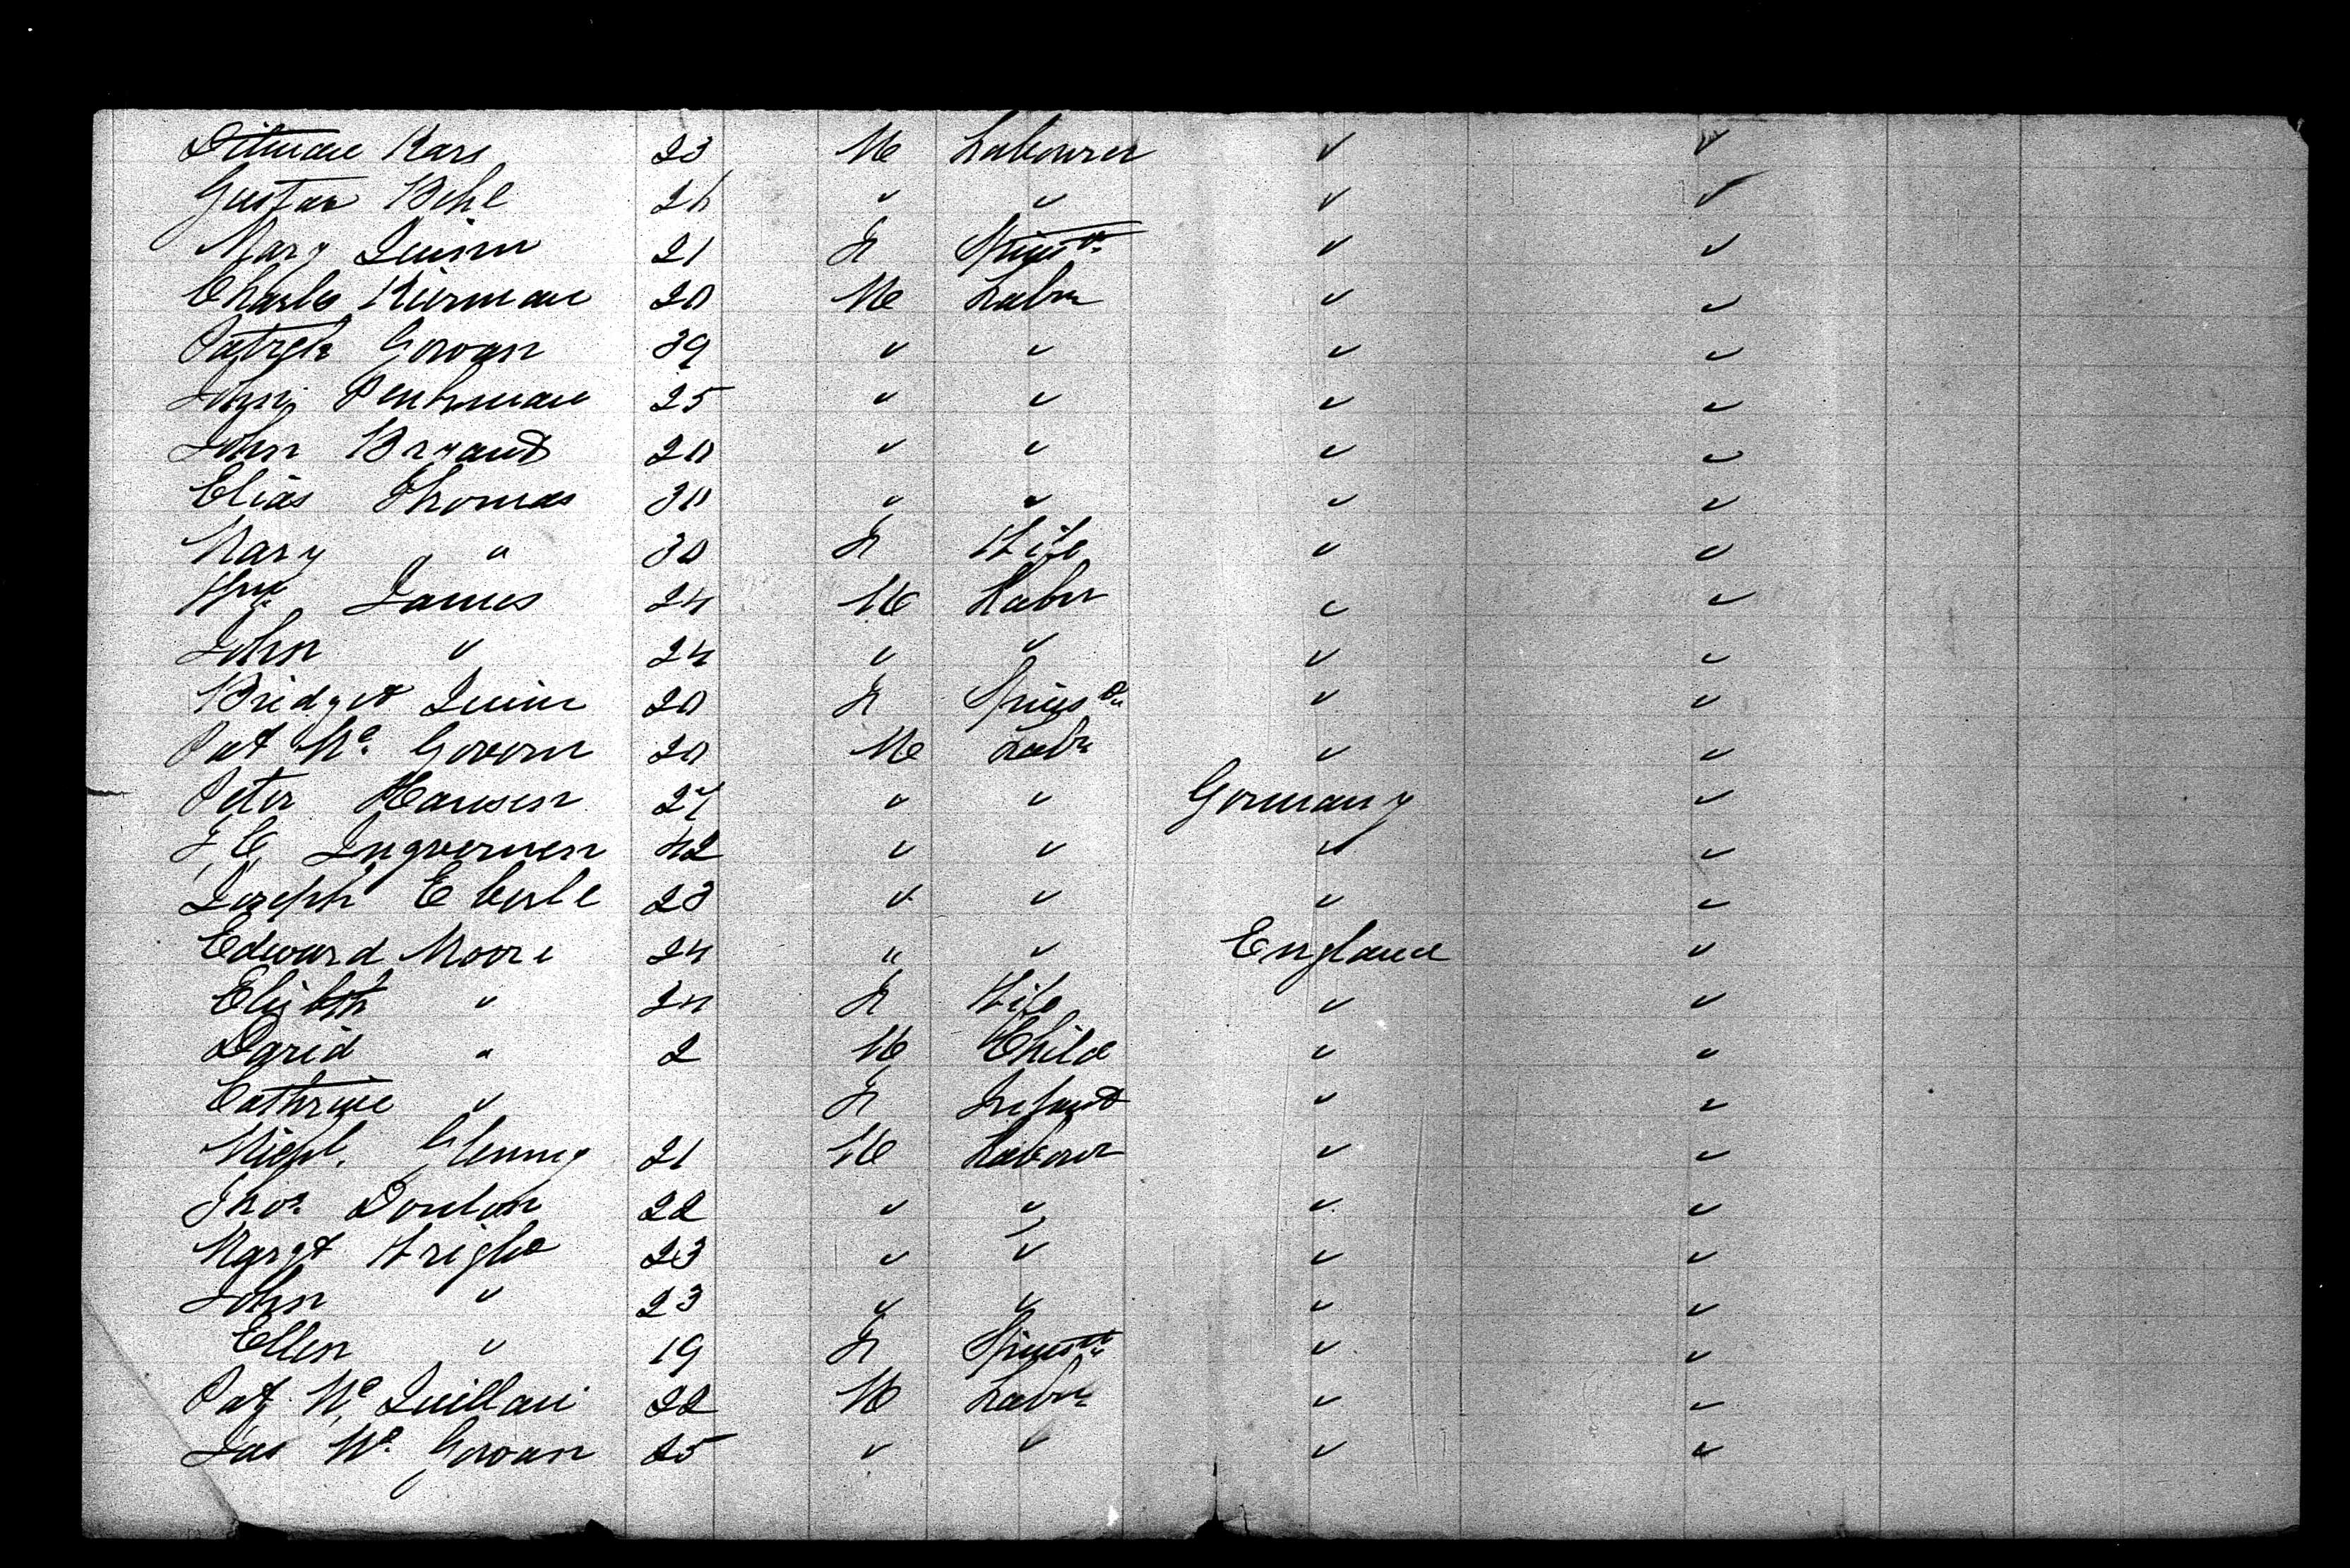 Ditman Kars 23 M Labourer " "
Gustav Behl 26 " " " "
Mary Quinn 21 F Spinstr " "
Charls Kierman 20 M Labr " "
Patrick Govan 39 " " " "
John Penhman 25 " " " "
John Bryant 20 " " " "
Elias Thomas 30 " " " "
Mary " 30 F Wife " "
Wm James 24 M Labr " "
John " 24 " " " "
Bridget Quinn 20 F Spinsr " "
Pat Mc Govern 20 M Labr " "
Peter Hansen 27 " " Germany "
J C Ingversen 42 " " " "
Joseph Eberle 23 " " " "
Edward Moore 24 " " England "
Elizbth " 24 F Wife " "
David " 2 M Child " "
Cathrine " F Infant " "
Michl. Glenny 21 M Labour " "
Thos Donlon 22 " " " "
Margt Wright 23 " " " "
John " 23 " " " "
Ellen " 19 F Spinstr " "
Pat Mc Quillan 22 M Labr " "
Jas Mc Govan 25 " " " "